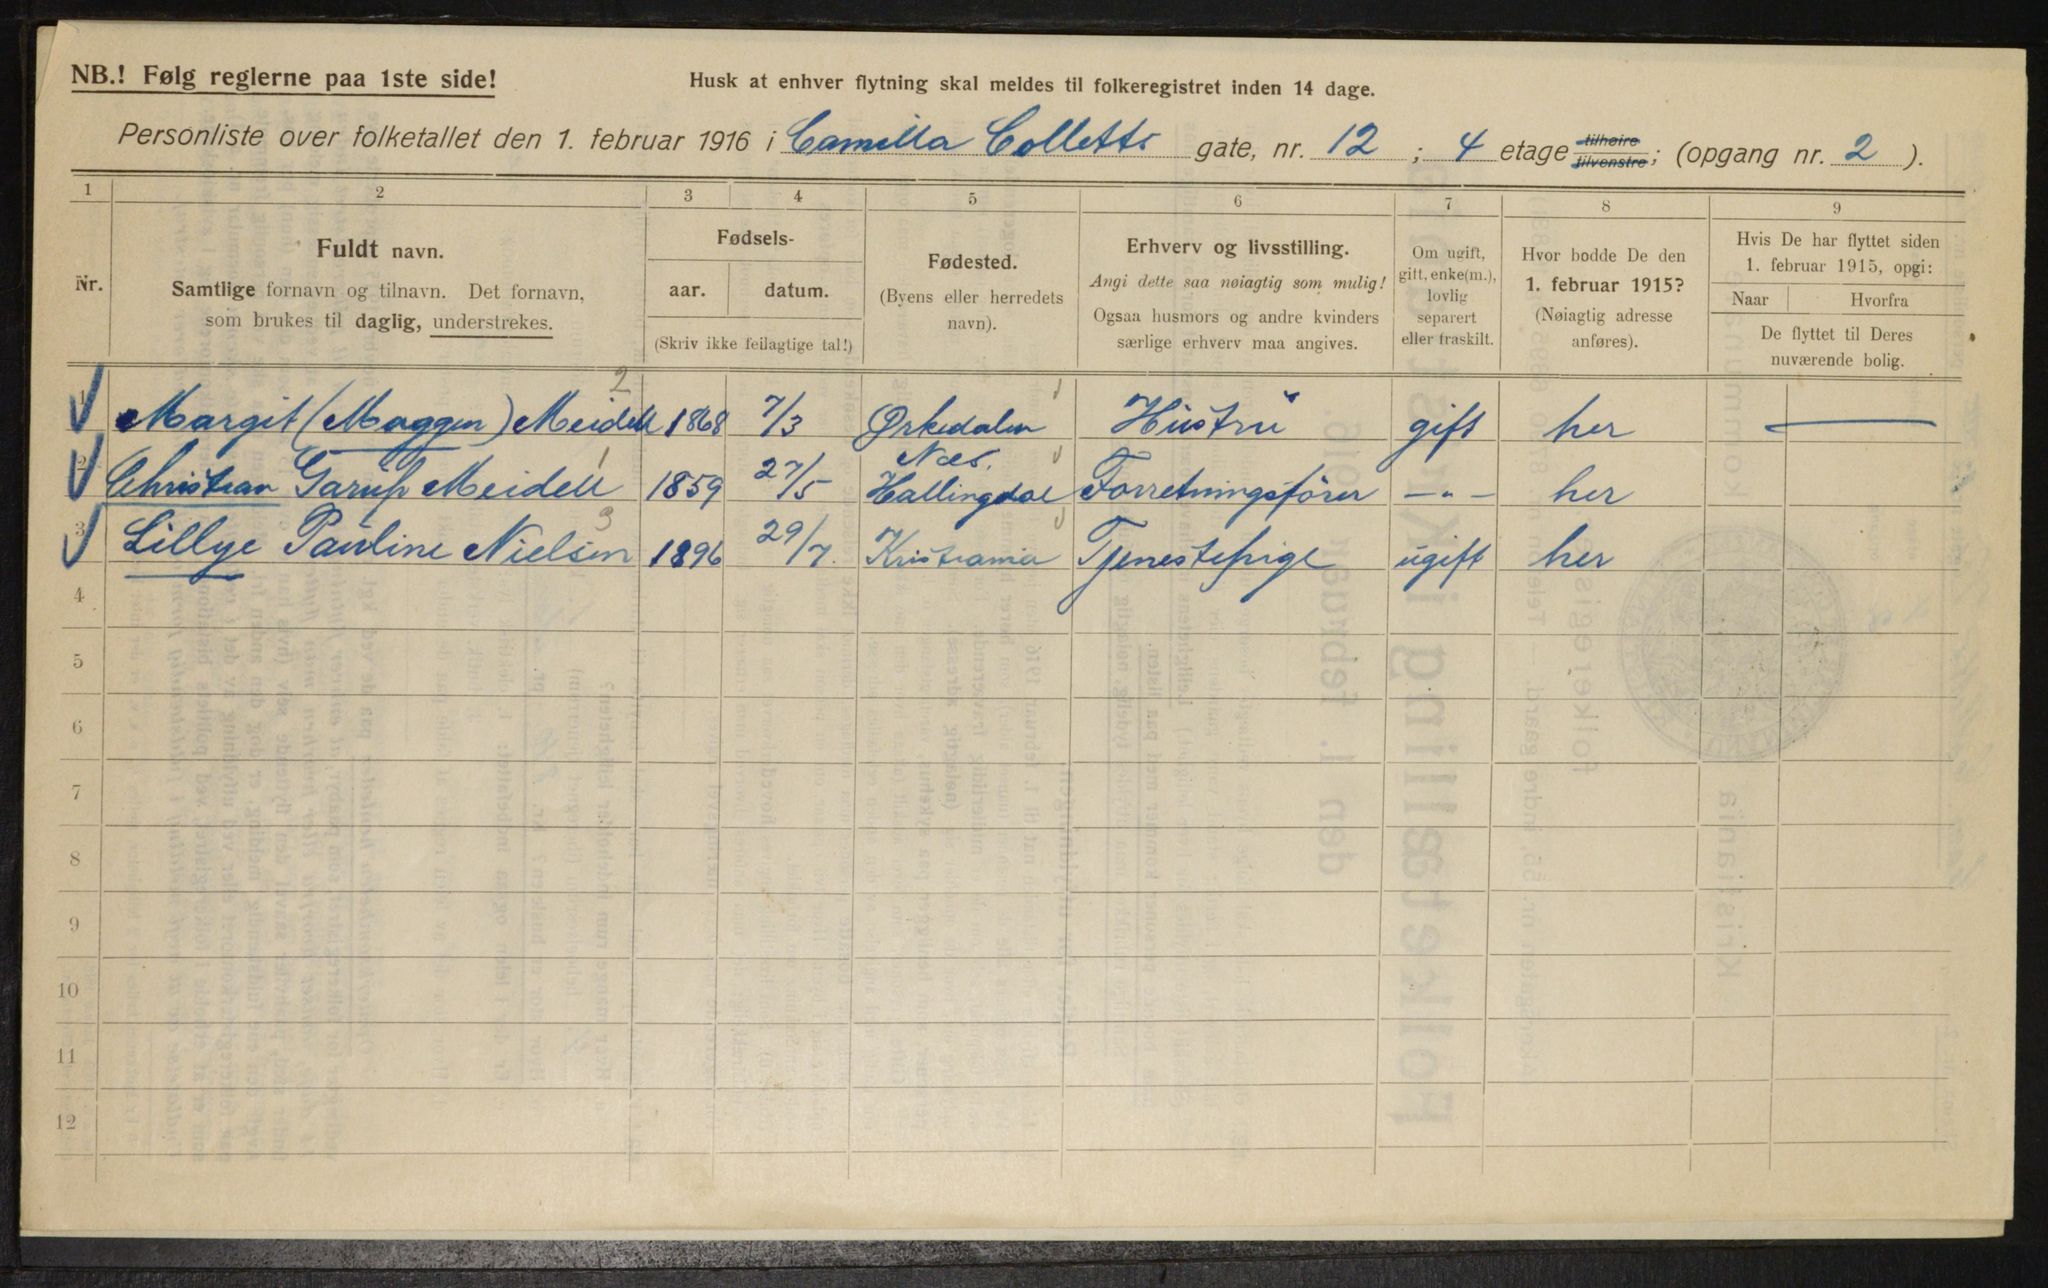 NB.! Følg reglerne paa 1ste side!
Husk at enhver flytning skal meldes til folkeregistret inden 14 dage.
Personliste over folketallet den 1. februar 1916 i Camilla Colletts gate, nr. 12 ; 4 etage tilhøire tilvenstre; (opgang nr. 2 ).
1 2 3 4 5 6 7 8 9
Nr.
Fuldt navn.
Samtlige fornavn og tilnavn. Det fornavn,
som brukes til daglig, understrekes.
Fødsels-
aar. datum.
(Skriv ikke feilagtige tal!)
Fødested.
(Byens eller herredets
navn).
Erhverv og livsstilling.
Angi dette saa nøiagtig som mulig!
Ogsaa husmors og andre kvinders
særlige erhverv maa angives.
Om ugift,
gift, enke(m.),
lovlig
separert
eller fraskilt.
Hvor bodde De den
1. februar 1915?
(Nøiagtig adresse
anføres).
Hvis De har flyttet siden
1. februar 1915, opgi:
Naar Hvorfra
De flyttet til Deres
nuværende bolig.
1 Margit (Maggen) Meidell 2 1868 7/3 Ørkedalen Hustru gift her —
2 Christian Garup Meidell 1 1859 27/5 Næs. Hallingdal Forretningsfører — " — her
3 Lillye Pauline Nielsen 3 1896 29/7. Kristiania Tjenestepige ugift her
4
5
6
7
8
9
10
11
12